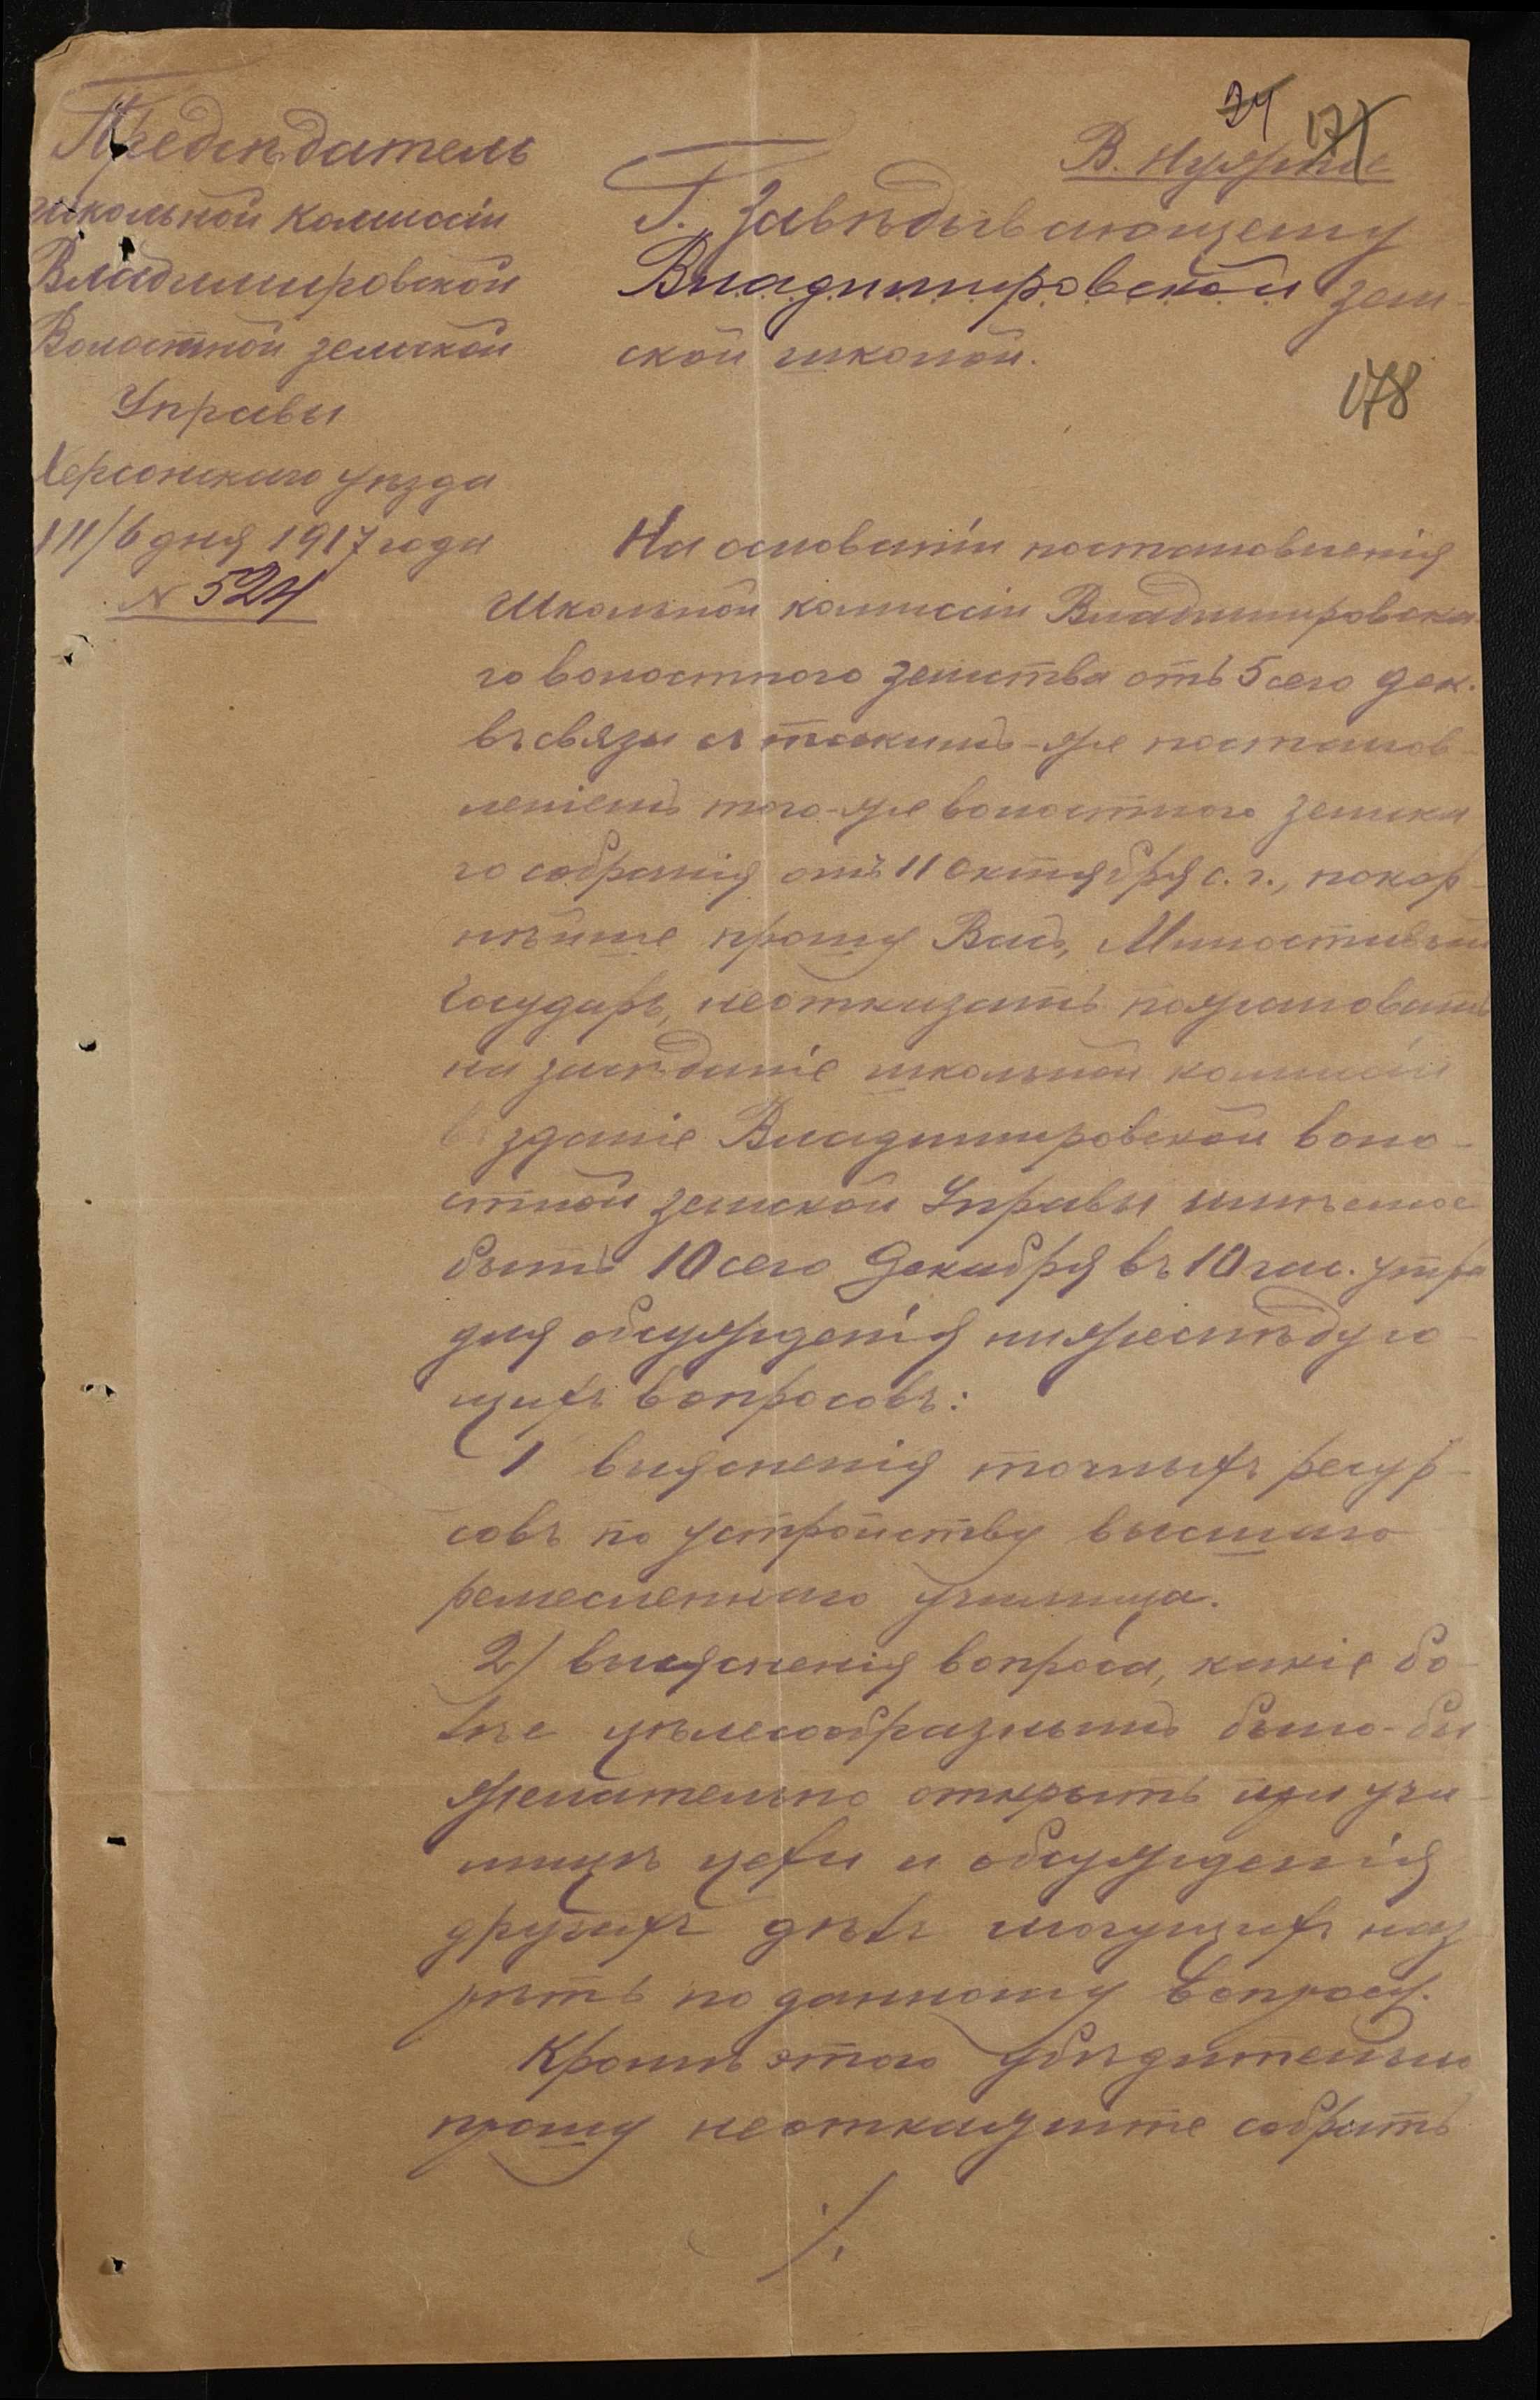 Предсѣдатель
школьной комиссіи
Владимировской
Волостной земской
Управы
Херсонскаго уѣзда
дня 1917 года
№ 524
24
171
В. нужное
Г. Завѣдывающему
Владимировской зем-
ской школой.
178
На основаніи постановленія
Школьной комиссіи Владимировска-
го волостного земства отъ 5 сего дек.
въ связи съ такимъ-же постанов-
леніемъ того-же волостного земска
го собранія отъ 11 октября с. г., покор-
нѣйше прошу Васъ, Милостивый
Государь, неотказать пожаловать
на засѣданіе школьной комиссіи
въ зданіе Владимировской воло-
стной земской Управы имѣемое
быть 10 сего Декабря въ 10 час. утра
для обсужденія нижеслѣдую-
щихъ вопросовъ:
1 выясненія точныхъ ресур-
совъ по устройству высшаго
ремесленнаго училища.
2) выясненія вопроса, какіе бо-
лѣе цѣлесообразнымъ было-бы
желательно открыть при учи-
лищѣ цехи и обсужденія
другихъ дѣлъ могущихъ наз-
рѣть по данному вопросу.
Кромѣ этого убѣдительно
прошу неоткажите собрать
./.